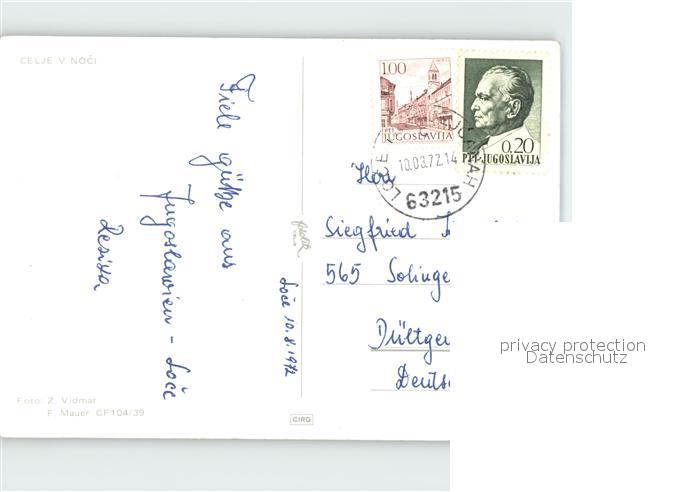 CELJE V NOČI
Viele grüße aus
Jugoslawien - Loče
Loče 10.8.1972
Foto: Z. Vidmar
F. Mauer CF104/39
CIRG
1.00
PTT
JUGOSLAVIJA
0.20
PTT-JUGOSLAVIJA
10.03.72.14
63215
Herr
Siegfried
565 Solinge
Dültge
Deuts
privacy protection
Datenschutz